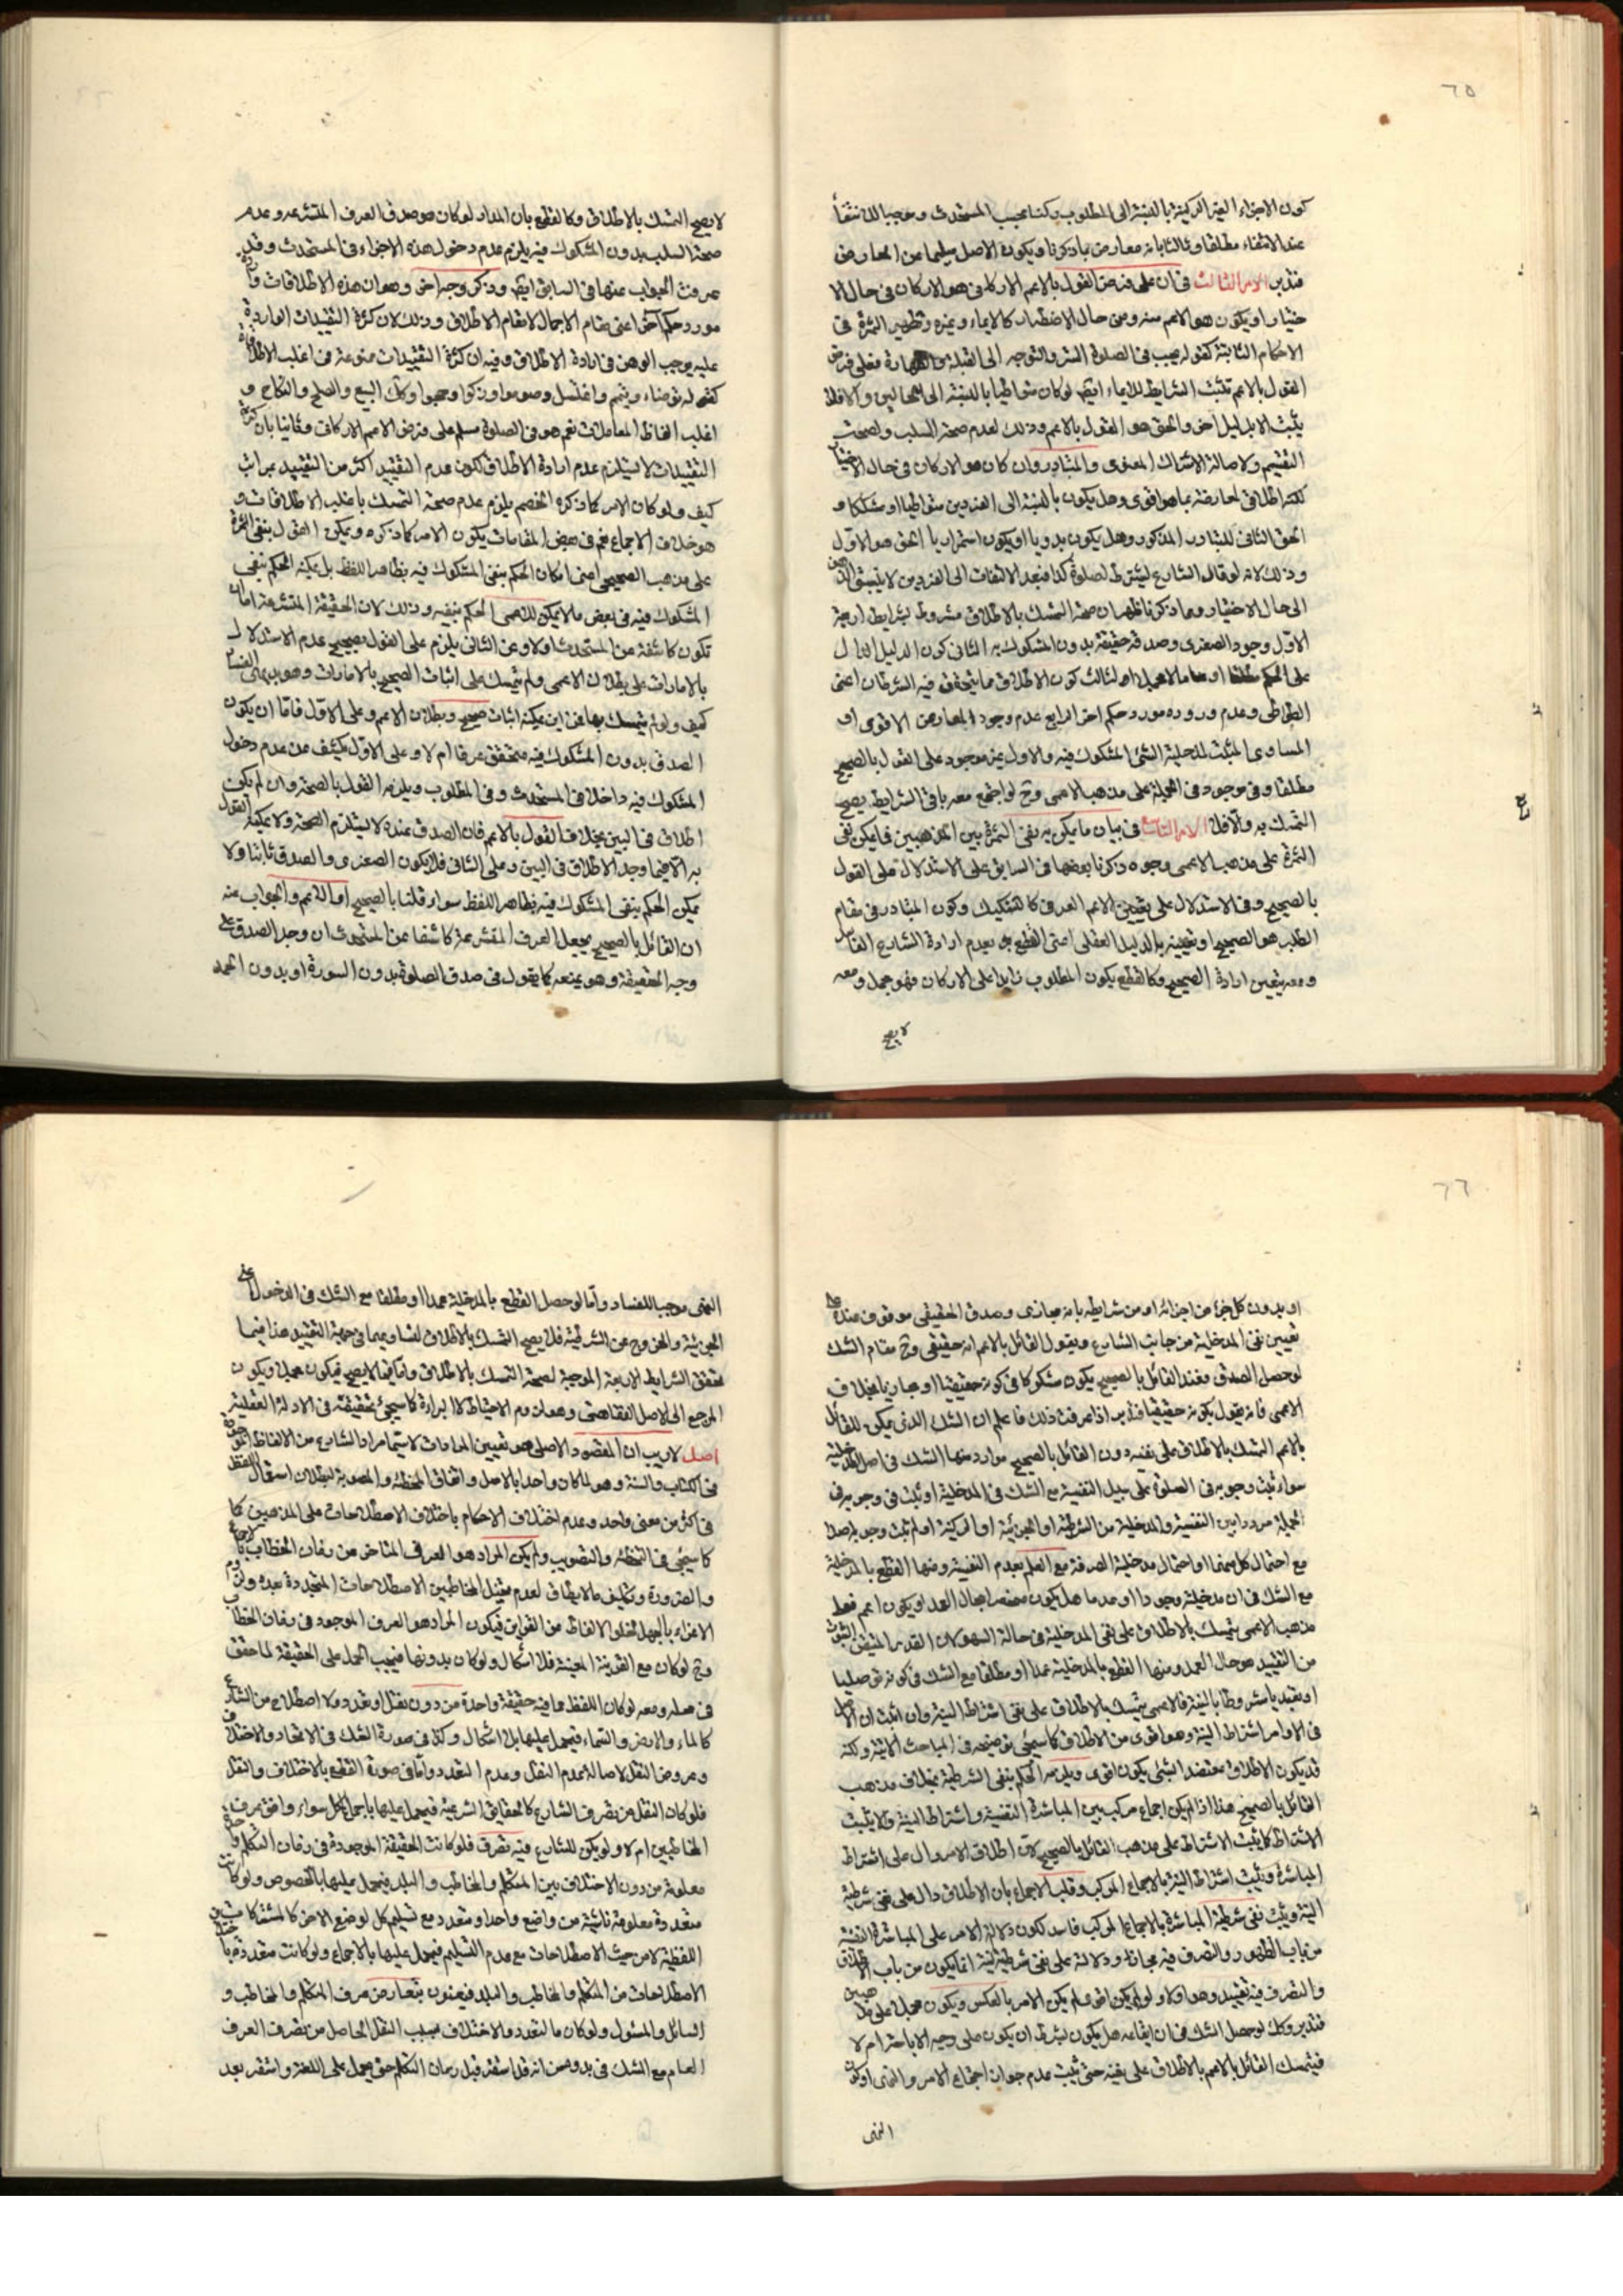 ٦٥
كون الاجزاء الغير الركنية بالنسبة الى المطلوب ركنا بحسب المستحدث وموجبا للانتفاء
عند الانتفاء مطلقا وثالثا بانه معارض بما ذكرنا ويكون الاصل سليما عن المعارض
فتدبر الامر الثالث فى ان على فرض القول بالاعم الاركانى هو الاركان فى حال الا
ختيار او يكون هو الاعم منه ومن حال الاضطرار كالايماء وغيره وتظهر الثمرة فى
الاحكام الثابتة كقوله يجب فى الصلوة الستر والتوجه الى القبلة والطهارة فعلى فرض
القول بالاعم تثبت الشرايط للايماء ايضا لو كان متواطيا بالنسبة الى الحالين والا فلا
يثبت الا بدليل آخر والحق هو القول بالاعم وذلك لعدم صحة السلب ولصحة
التقسيم ولاصالة الاشتراك المعنوى والمتبادر وان كان هو الاركان فى حال الاختيار
لكنه اطلاقى لمعارضة بما هو اقوى وهل يكون بالنسبة الى الفردين متواطيا او مشككا و
الحق الثانى للتبادر المذكور وهل يكون بدويا او يكون استمراريا الحق هو الاول
وذلك لانه لو قال الشارع يشترط لصلوة كذا فبعد الالتفات الى الفردين لا ينسبق الذهن
الى حال الاختيار ومما ذكرنا ظهر ان صحة التمسك بالاطلاق مشروط بشرايط اربعة
الاول وجود الصغرى وصدقه حقيقة بدون المشكوك به الثانى كون الدليل الدال
على الحكم الثالث كون الاطلاق مما يتحقق فيه الشرطان اعنى
التواطى وعدم وروده مورد حكم اخر الرابع عدم وجود المعارض الاقوى او
المساوى المثبت لمدخلية الشئ المشكوك فيه والاول غير موجود على القول بالصحيح
مطلقا وفى موجود فى الجملة على مذهب الاعمى وح لو اجتمع معه باقى الشرايط يصح
التمسك به والا فلا الامر فى بيان ما يمكن به نفى الثمرة بين المذهبين فما يمكن نفى
الثمرة على مذهب الاعمى وجوه ذكرنا بعضها فى السابق على الاستدلال على القول
بالصحيح وفى الاستدلال على تعيين الاعم العرفى كالتشكيك وكون المتبادر فى مقام
الطلب هو الصحيح او تعيينه بالدليل العقلى اعنى القطع بعدم ارادة الشارع الفاسد
ومعه يتعين ارادة الصحيح وكالقطع بكون المطلوب زايدا على الاركان فهو مجمل ومعه
لا يصح
لا يصح التمسك بالاطلاق وكالقطع بان المدار لو كان هو صدق العرف المتشرعه وعدم
صحة السلب بدون المشكوك فيه يلزم عدم دخول هذه الاجزاء فى المستحدث وقد
عرفت الجواب عنها فى السابق ايضا وذكر وجه اخر وهو ان هذه الاطلاقات واردة
مورد حكم آخر اعنى مقام الاجمال لا مقام الاطلاق وذلك لان كثرة التقييدات الواردة
عليه يوجب الوهن فى ارادة الاطلاق وفيه ان كثرة التقييدات ممنوعة فى اغلب الاطلاقات
كقوله توضاء وتيمم واغتسل وصوموا وزكوا وحجوا وكك البيع والصلح والنكاح و
اغلب الفاظ المعاملات نعم هو فى الصلوة مسلم على فرض الاعم الاركانى وثانيا بان كثرة
التقييدات لا يستلزم عدم ارادة الاطلاق لكون عدم التقييد اكثر من التقييد بمراتب
كيف ولو كان الامر كما ذكره الخصم يلزم عدم صحة التمسك باغلب الاطلاقات و
هو خلاف الاجماع نعم فى بعض المقامات يكون الامر كما ذكره ويمكن القول بنفى الثمرة
على مذهب الصحيحى اعنى امكان الحكم بنفى المشكوك فيه بظاهر اللفظ بل يمكنه الحكم بنفى
المشكوك فيه فى بعض ما لا يمكن للاعمى الحكم بنفيه وذلك لان الحقيقة المتشرعة اما ان
تكون كاشفة من المستحدث او لا وعن الثانى يلزم على القول بصحيح عدم الاستدلال
بالامارات على بطلان الاعمى ولم يتمسك على اثبات الصحيح بالامارات وهو بديهى الفساد
كيف ولو لم يتمسك بها فمن اين يمكنه اثبات صحيح وبطلان الاعم وعلى الاول فاما ان يكون
الصدق بدون المشكوك فيه متحقق عرفا ام لا وعلى الاول يكشف عن عدم دخول
المشكوك فيه داخلا فى المستحدث وفى المطلوب ويلزمه القول بالصحة وان لم يكن
اطلاق فى البين بخلاف القول بالاعم فان الصدق عنده لا يستلزم الصحة ولا يمكنه القول
به الا فيما وجد الاطلاق فى البين وعلى الثانى فلا يكون الصغرى والصدق ثابتا ولا
يمكن الحكم بنفى المشكوك فيه بظاهر اللفظ سواء قلنا بالصحيح او الاعم والجواب عنه
ان القائل بالصحيح يجعل العرف المتشرعة كاشفا عن المستحدث ان وجد الصدق على
وجه الحقيقة وهو يمنعه كما يقول فى صدق الصلوة بدون السورة او بدون الحمد
٦٦
او بدون كل جزء من اجزائه او من شرايطه بانه مجازى وصدق الحقيقى موقوف عنده على
تعيين نفى المدخلية من جانب الشارع ويقول القائل بالاعم انه حقيقى وح مقام الشك
لو حصل الصدق فعند القائل بالصحيح يكون مشكوكا فى كونه حقيقيا او مجازيا بخلاف
الاعمى فانه يقول بكونه حقيقيا فتدبر اذا عرفت ذلك فاعلم ان الشك الذى يمكن للقائل
بالاعم التمسك بالاطلاق على نفيه دون القائل بالصحيح موارد منها الشك فى اصل المدخلية
سواء ثبت وجوبه فى الصلوة على سبيل النفسية مع الشك فى المدخلية او ثبت فى وجوبه فى
الجملة مرددا بين النفسية والمدخلية من الشرطية او الجزئية او الركنية او لم يثبت وجوبه اصلا
مع احتمال كل منهما او احتمال مدخلية الصرفة مع العلم بعدم النفسية ومنها القطع بالمدخلية
مع الشك فى ان مدخليته وجودا او عدما هل يكون مختصا بحال العمد او يكون اعم فعلى
مذهب الاعمى يتمسك بالاطلاق على نفى المدخلية فى حالة السهو لان القدر المتيقن الثبوت
من التقييد هو حال العمد ومنها القطع بالمدخلية عمدا او مطلقا مع الشك فى كونه توصليا
او تعبديا مشروطا بالنية فالاعمى يتمسك بالاطلاق على نفى اشتراط النية وان اثبت ان الاصل
فى الاوامر اشتراط النية وهو اقوى من الاطلاق كما سيجئ توضيحه فى المباحث الاتية ولكنه
قد يكون الاطلاق معتضد الشئ يكون اقوى ويلزمه الحكم بنفى الشرطية بخلاف مذهب
القائل بالصحيح هذا اذا لم يكن اجماع مركب بين المباشرة النفسية واشتراط النية والا يثبت
الاشتراط كما يثبت الاشتراط على مذهب القائل بالصحيح لان اطلاق الامر دال على اشتراط
المباشرة ويثبت اشتراط النية بالاجماع المركب وقلب الاجماع بان الاطلاق دال على نفى شرطية
النية ويثبت نفى شرطية المباشرة بالاجماع المركب فاسد لكون دلالة الامر على المباشرة النفسية
من باب الظهور والتصرف فيه مجاز ودلالته على نفى شرطية النية انما يكون من باب الاطلاق
والتصرف فيه تقييد وهو اولى ولو لم يكن اقوى لم يكن الامر بالعكس ويكون مجملا على
فتدبر وكك لو حصل الشك فى ان ايقاعه هل يكون بشرط ان يكون على وجه الاباحة ام لا
فيتمسك القائل بالاعم بالاطلاق على نفيه حتى يثبت عدم جواز اجتماع الامر والنهى او كون
النهى
النهى موجبا للفساد واما لو حصل القطع بالمدخلية عمدا او مطلقا مع الشك فى الدخول على
الجزئية والخروج عن الشرطية فلا يصح التمسك بالاطلاق لتساويهما فى جهة التقييد هذا فيما
تحقق الشرايط الاربعة الموجبة لصحة التمسك بالاطلاق واما فيما لا يصح فيكون مجملا ويكون
المرجع الى الاصل الفقاهتى وهو لزوم الاحتياط كالبرائة كما سيجئ تحقيقه فى الادلة العقلية
اصل لا ريب ان المقصود الاصلى هو تعيين المرادات لا سيما مراد الشارع من الالفاظ الموجودة
فى الكتاب والسنة وهو لما كان واحدا بالاصل واتفاق المخطئة والمصوبة لبطلان استعمال اللفظ
فى اكثر من معنى واحد وعدم اختلاف الاحكام باختلاف الاصطلاحات على المذهبين كما
كما سيجئ فى التخطئة والتصويب ولم يكن المراد هو العرف المتاخر عن زمان الخطاب بالاجماع
والضرورة وتكليف ما لا يطاق لعدم تمثل المخاطبين الاصطلاحات المتجددة بعده ولزوم
الاغراء بالجهل لخلو الالفاظ من القراين فيكون المراد هو العرف الموجود فى زمان الخطاب
وح لو كان مع القرينة المعينة فلا اشكال ولو كان بدونها فيجب الحمل على الحقيقة لما حقق
فى محله ومعه لو كان اللفظ مما فيه حقيقة واحدة من دون نقل او تعدد ولا اصطلاح من الشارع
كالماء والارض والسماء فيحمل عليها بلا اشكال وكذا فى صورة الشك فى الاتحاد والاختلاف
وعروض النقل لاصالة عدم النقل وعدم التعدد واما فى صورة القطع بالاختلاف والنقل
فلو كان النقل من تصرف الشارع كالحقايق الشرعية فيحمل عليها باجماع الكل سواء وافق عرف
المخاطبين ام لا ولو لم يكن للشارع فيه تصرف فلو كانت الحقيقة الموجودة فى زمان التكلم
معلومة من دون الاختلاف بين المتكلم والمخاطب والبلد فيحمل عليها بالخصوص ولو كانت
متعددة معلومة ناشية من واضع واحد او متعدد مع تسليم كل لوضع الاخر كالمشتركات
اللفظية لا من حيث الاصطلاحات مع عدم التسليم فيحمل عليها بالاجماع ولو كانت متعددة باختلاف
الاصطلاحات من المتكلم والمخاطب والبلد فيعنون بتعارض عرف المتكلم والمخاطب و
السائل والمسئول ولو كان ما لتعدد والاختلاف بسبب النقل الحاصل من تصرف العرف
العام مع الشك فى بدوه من انه قد استقر قبل زمان التكلم حتى يحمل على اللغة واستقر بعد